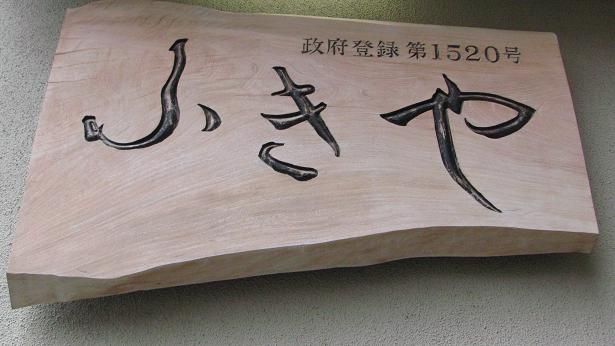 政府登録 第1520号
ふきや